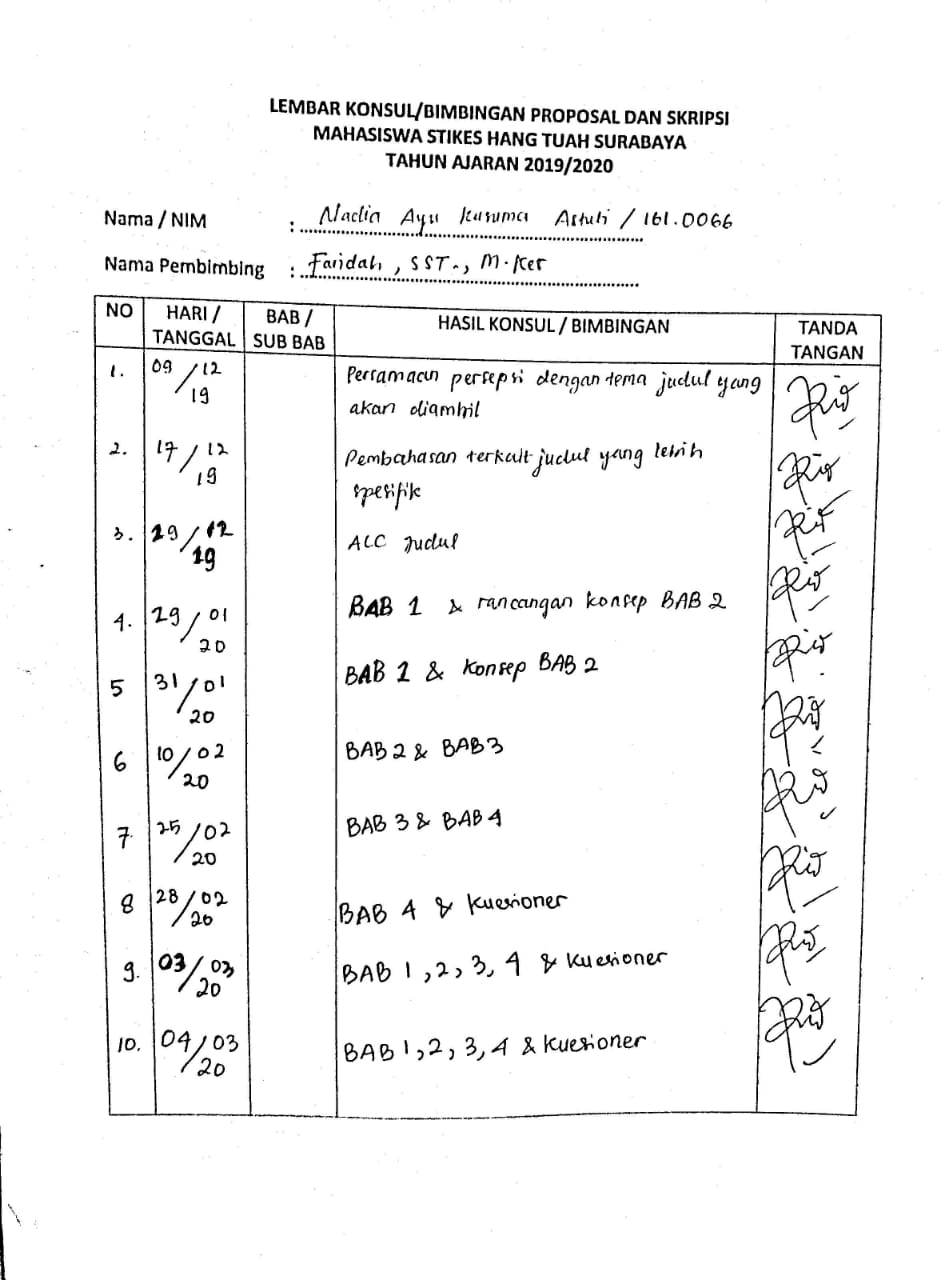 LEMBAR KONSUL/BIMBINGAN PROPOSAL DAN SKRIPSI
MAHASISWA STIKES HANG TUAH SURABAYA
TAHUN AJARAN 2019/2020
Nama / NIM : Nadia Ayu Kusuma Astuti / 161.0066
Nama Pembimbing : Faridah, SST., M.Kes
NO HARI / TANGGAL BAB / SUB BAB HASIL KONSUL / BIMBINGAN TANDA TANGAN
1. 09/12 19 Persamaan persepsi dengan tema judul yang
akan diambil
2. 17/12 19 Pembahasan terkait judul yang lebih
spesifik
3. 19/12 19 ACC Judul
4. 29/01 20 BAB 1 & rancangan konsep BAB 2
5 31/01 20 BAB 1 & Konsep BAB 2
6 10/02 20 BAB 2 & BAB 3
7. 25/02 20 BAB 3 & BAB 4
8 28/02 20 BAB 4 & Kuesioner
9. 03/03 20 BAB 1, 2, 3, 4 & Kuesioner
10. 04/03 20 BAB 1, 2, 3, 4 & Kuesioner